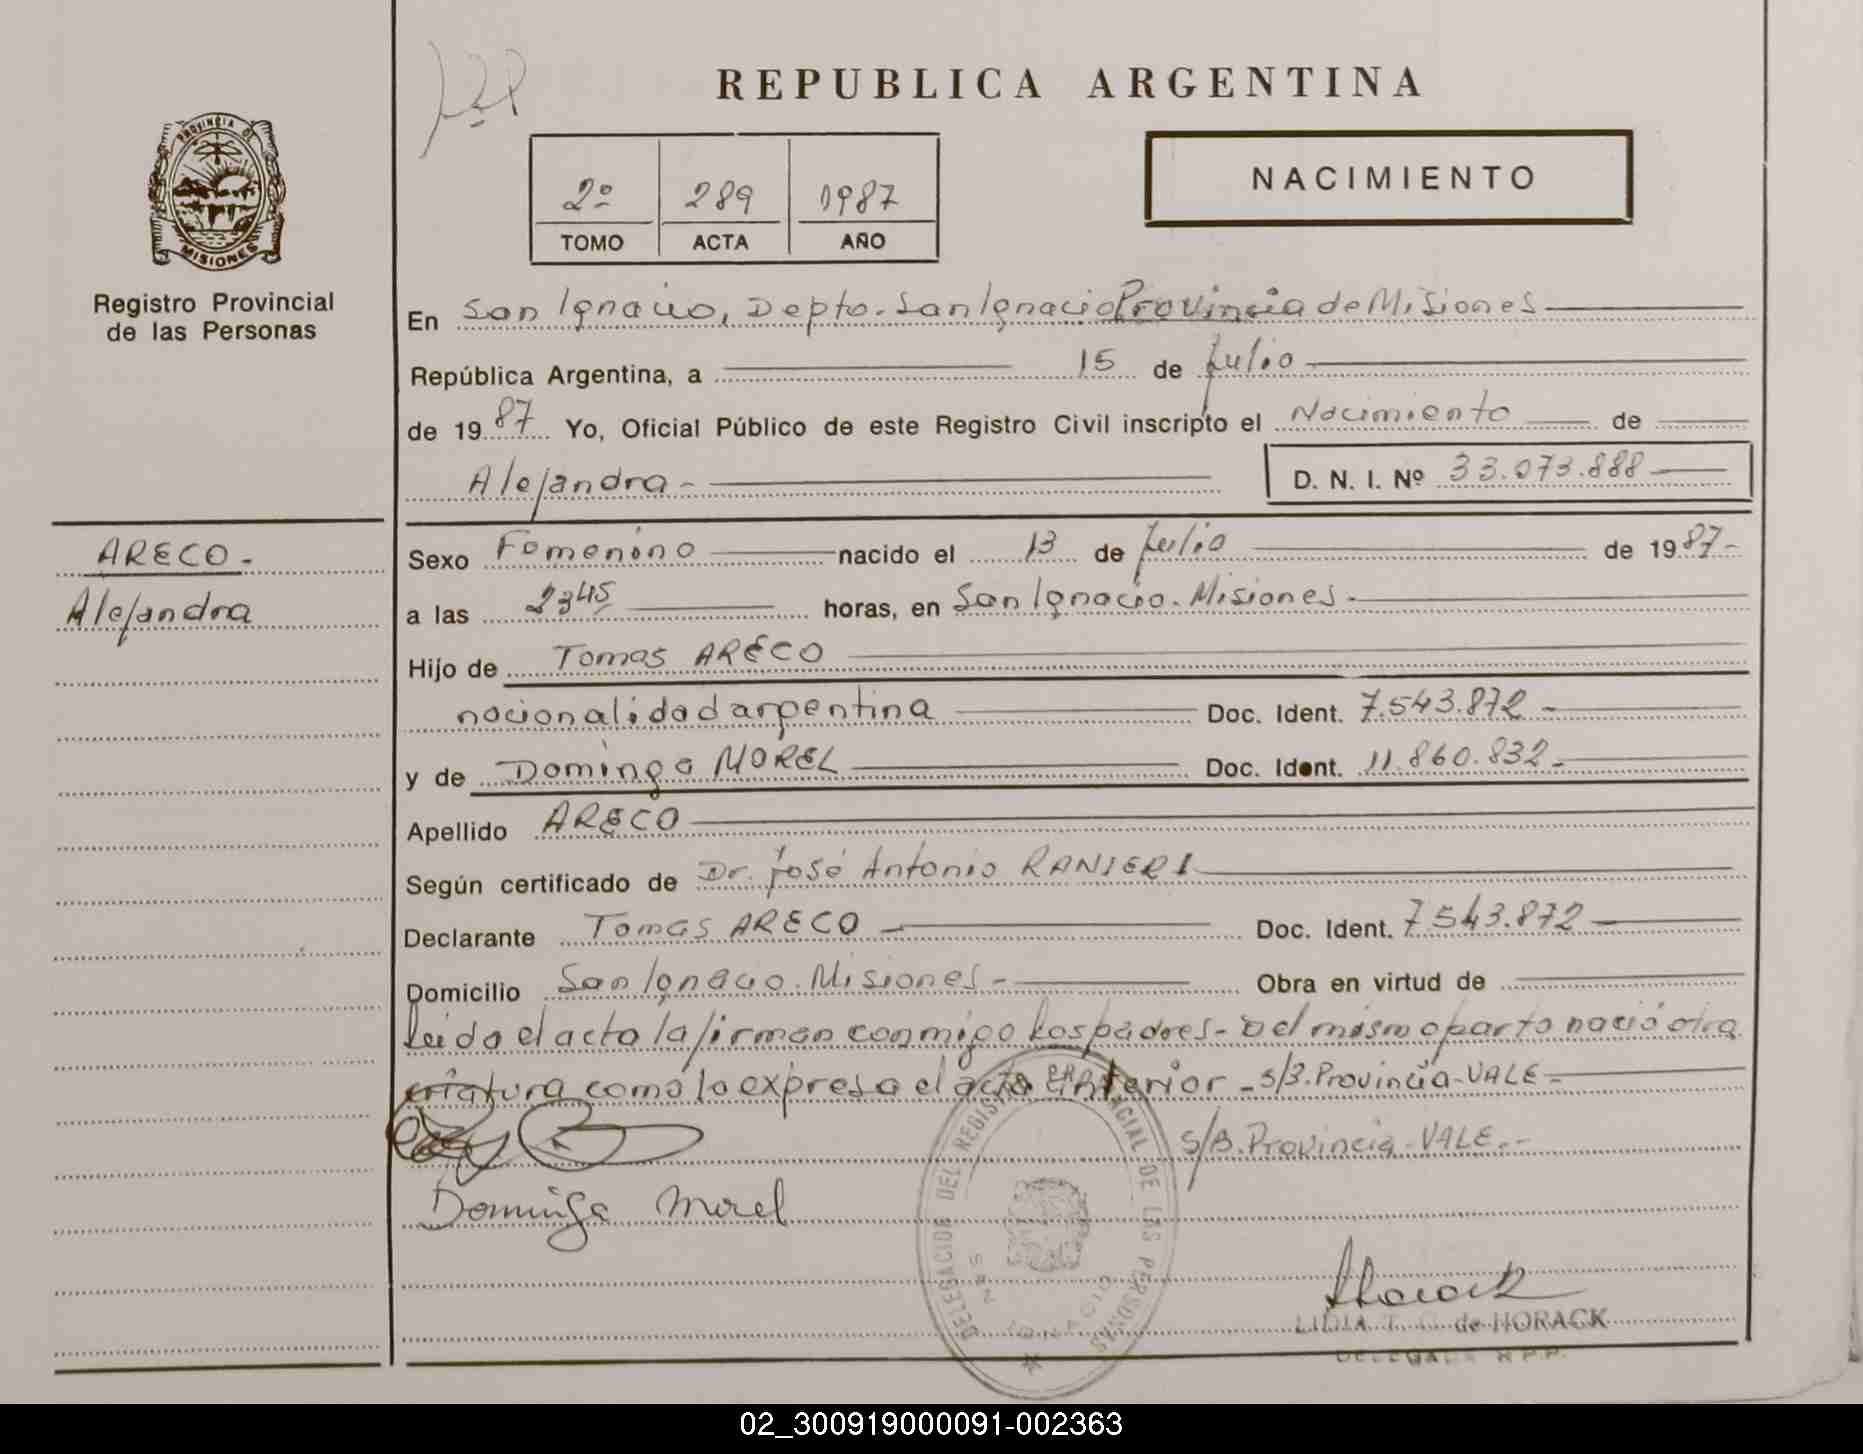 REPUBLICA ARGENTINA
PROVINCIA DE
MISIONES
Registro Provincial
de las Personas
2º 289 1987
TOMO ACTA AÑO
NACIMIENTO
En San Ignacio, Depto. San Ignacio Provincia de Misiones
República Argentina, a 15 de Julio
de 1987 Yo, Oficial Público de este Registro Civil inscripto el Nacimiento de
Alejandra - D. N. I. Nº 33.073.888
ARECO -
Alejandra
Sexo Femenino nacido el 13 de Julio de 1987-
a las 2345 horas, en San Ignacio. Misiones.
Hijo de Tomas ARECO
nacionalidad argentina Doc. Ident. 7.543.872 -
y de Dominga MOREL Doc. Ident. 11.860.832-
Apellido ARECO
Según certificado de Dr. José Antonio RANIERI
Declarante Tomas ARECO - Doc. Ident. 7543.872
Domicilio San Ignacio. Misiones - Obra en virtud de
Leida el acta la firman conmigo los padres- del mismo parto nació otra
criatura como lo expresa el acta anterior - s/B. Provincia-VALE-
S/B. Provincia-VALE.-
Dominga Morel
DELEGACION DEL REGISTRO PROVINCIAL DE LAS PERSONAS
SAN IGNACIO
Horack
LIDIA T. de HORACK
DELEGADA R.P.P.
02_300919000091-002363